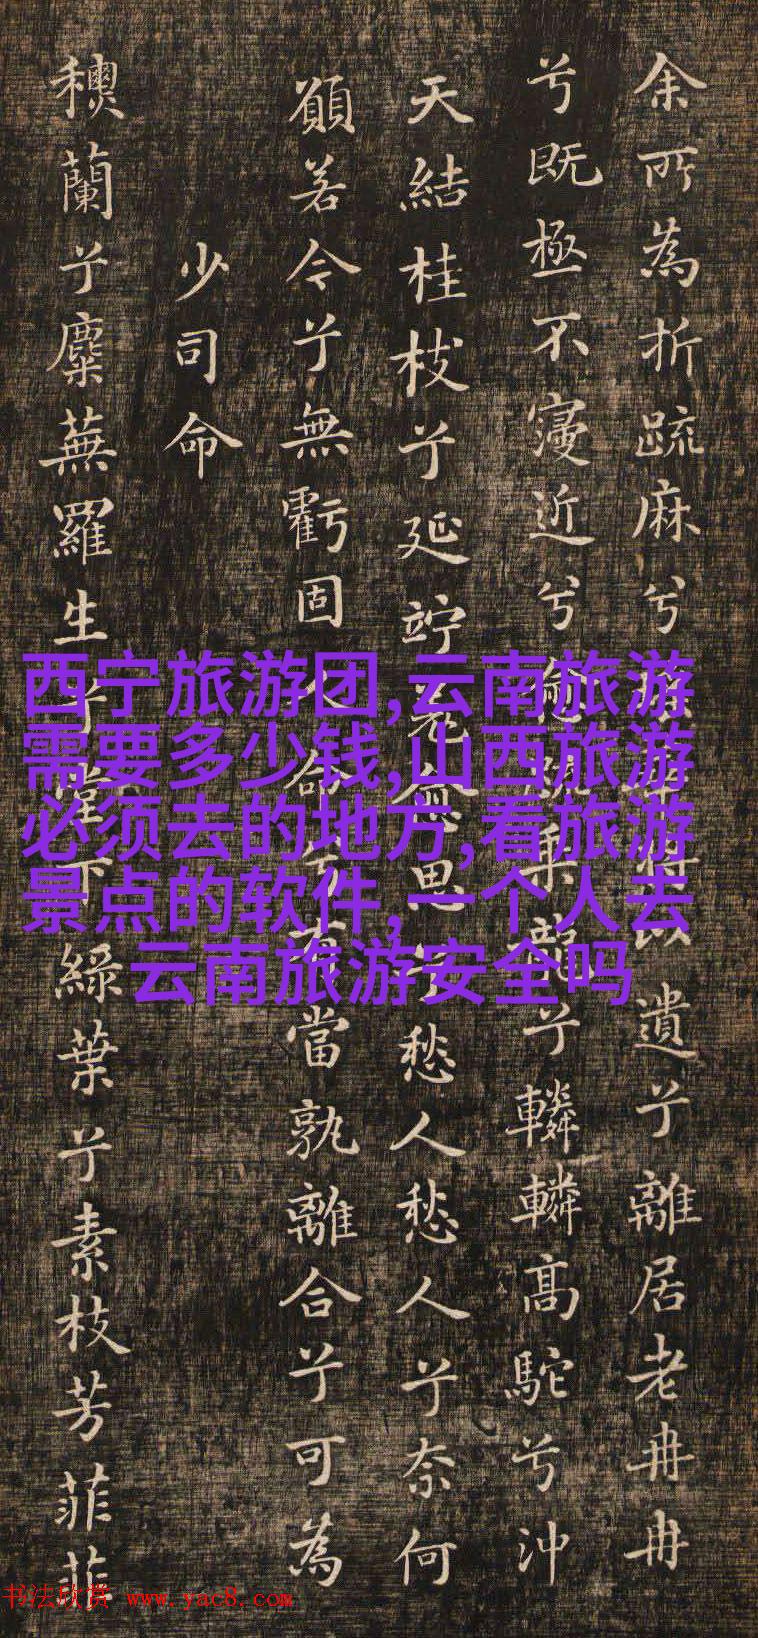 余所為折疏麻兮華将以遺兮離居老冉冉
兮既極不寖近兮愈疏乘龍兮轔轔高駝兮沖
天結桂枝兮延竚羌無思兮愁人愁人兮奈何
願若今兮無虧固人命兮有當孰離合兮可為
少司命
蘭兮麋蕪羅生兮堂下緑葉兮素枝芳菲菲
西宁旅游团,云南旅游
需要多少钱,山西旅游
必须去的地方,看旅游
景点的软件,一个人去
云南旅游安全吗
书法欣赏 www.yac8.com